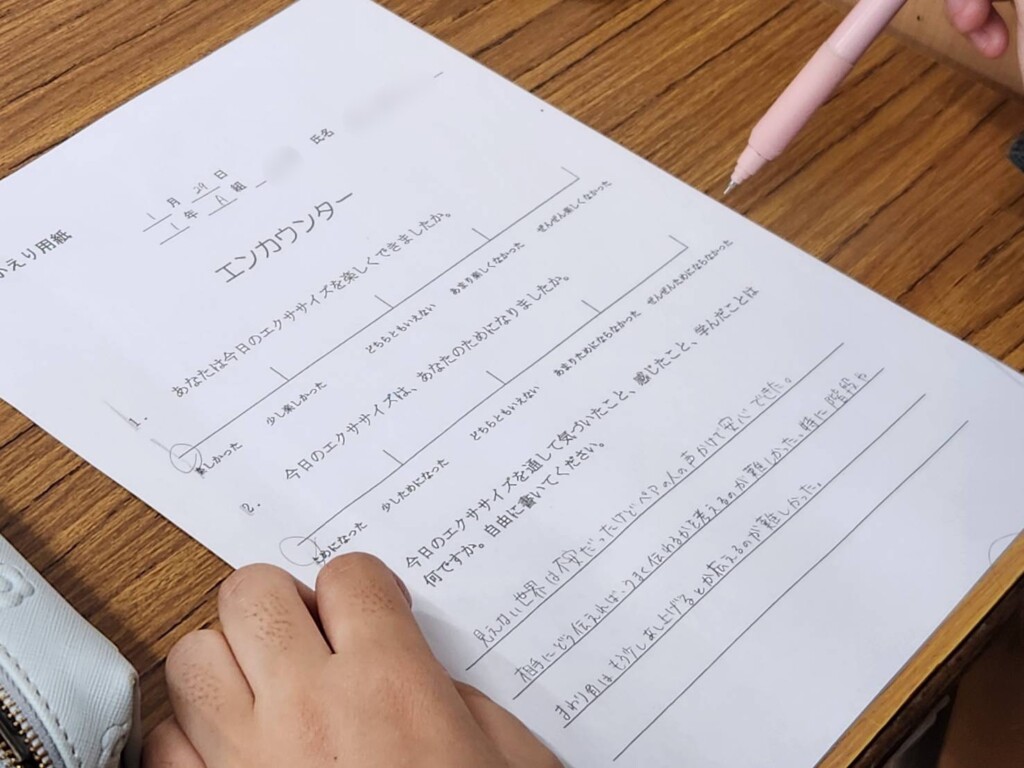 かえり用紙
1月29日
1年A組
氏名
エンカウンター
1. あなたは今日のエクササイズを楽しくできましたか。
楽しかった 少し楽しかった どちらともいえない あまり楽しくなかった ぜんぜん楽しくなかった
2. 今日のエクササイズは、あなたのためになりましたか。
ためになった 少しためになった どちらともいえない あまりためにならなかった ぜんぜんためにならなかった
今日のエクササイズを通して気づいたこと、感じたこと、学んだことは
何ですか。自由に書いてください。
見えない世界は不安だったけどペアの人の声かけで安心できた。
相手にどう伝えれば、うまく伝わるかを考えるのが難しかった。特に階段や
まわり角はもう少しあし上げてとか伝えるのが難しかった。